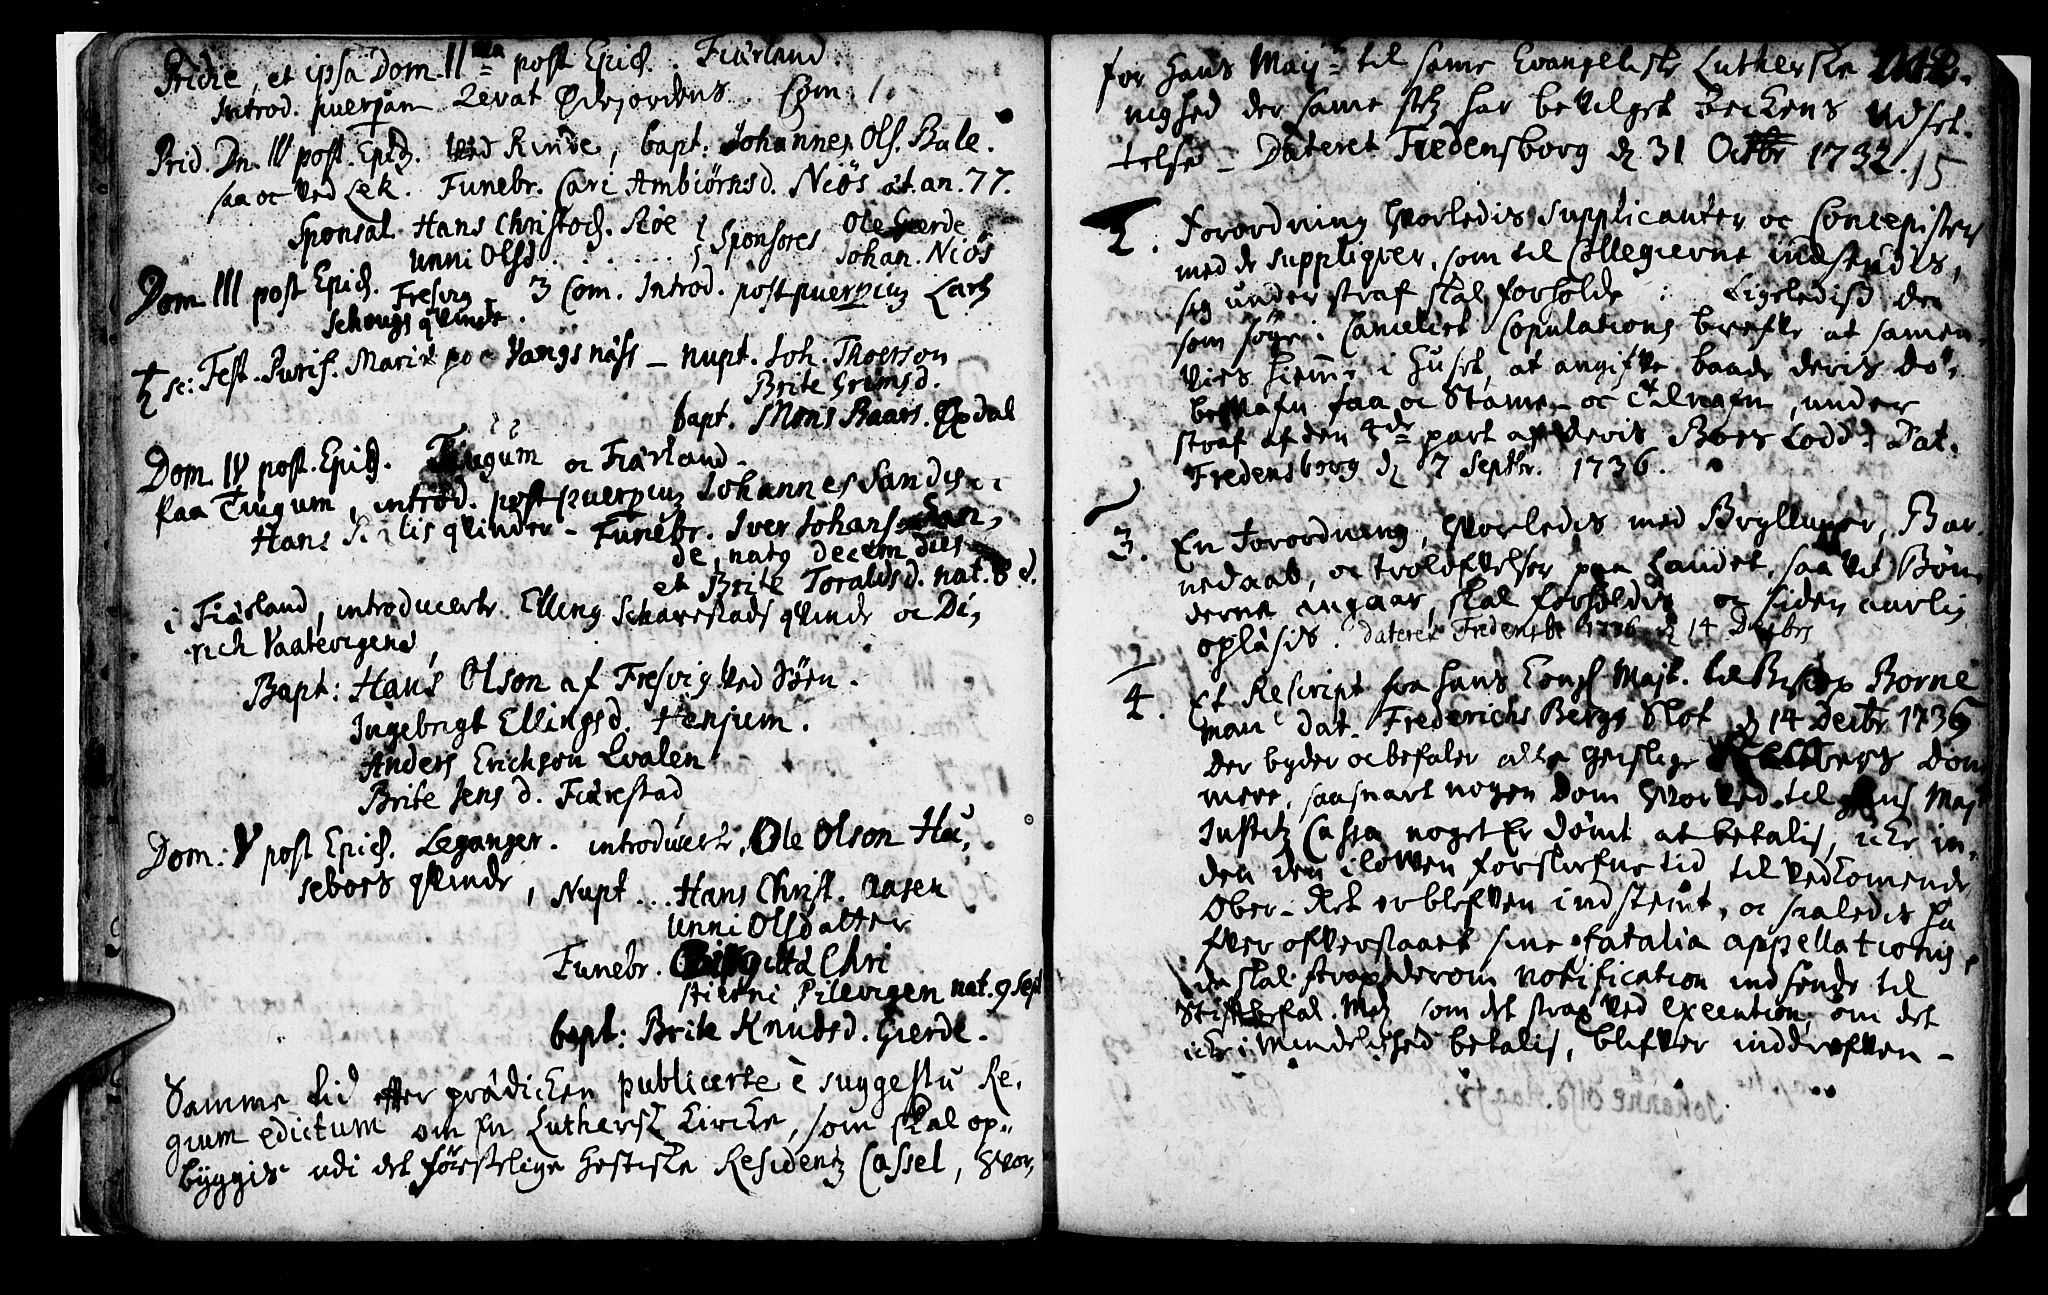 Pridie, et ipsa Dom. IIda post Epiph. Fiärland.
Introd. puerpam Zerat Ødejordens. Com. 1.
Prid. Dn. IV post. Epiph. Ved Rinde, bapt: Johannes Ols. Bale.
saa oc Ved Lek. Funebr. Cari Ambiörnsd. Niös æt. an. 77.
Sponsal. Hans Christoph. Röe } Sponsores Ole Gierde
Unni Olsd. . . . . . . Johan. Niös
Dom. III post Epiph. Fresvig. 3 Com. Introd. post puerpium Lars
Schougs qvinde.
sc: Fest. Purif. Mariæ poe Vangsnäss - nupt. Joh. Thoerson
Brite Grimsd.
bapt. Mons Baars. Øxdal
Dom. IV post. Epiph. Tiugum oc Fiärland.
Paa Tiugum, introd. post puerpium Johannes Sandes
Hans qvinder - Funebr. Iver Johans. San,
de, nat9 decem dies
et Brite Toraldsd. nat. 8 d.
i Fiärland, introducerte Elling Scharestads qvinde oc Di,
rich Vaatevigens,
Bapt: Hans Olson af Fresvig Ved Söen.
Ingebrigt Ellingsd. Henjum.
Anders Erichson Lvalen
Brite Jens d. Fiärestad
Dom: V post Epiph. Leganger. introducerte Ole Olson Hu,
seboes qvinde, Nupt... Hans Christ. Aasen
Unni Olsdatter
Funebr. Birgitta Chri
stierni Pilevigen nat. 9 Sept
bapt: Brite Knudsd. Gierde.
Samme tid effter prädicken publicerte è suggestu Re,
gium edictum om en Luthersk Kircke, som skal op,,
byggis udi det förstelige Hessiske Residentz Cassel, hvor,
for Hans Majt. til same Evangeliske Lutherske
nighed der same stz har bevilget Beckens udset.
telse - Dateret Fredensborg d 31 Octbr 1732. 15
2. Forordning hvorledis Supplicanter oc Concepister
med de suppliqver, som til Collegierne indsendis,
sig under straf skal forholde : Ligeledis de
som söger i Cancelict Copulations brefve at samen,
vies hiemme i Huset, at angifve baade deris Dö,
be Nafn saa oc Stame- oc tilnafn, under
straf af den 4de part af deris Boes Lodd. Dat.
Fredensborg d 7 Septbr. 1736.
3. En Forordning, hvorledis med Brylluper, Bar,
nedaab, oc trolofvelser paa Landet, saa vit Bön,
derne angaar, skal forholdis oc siden aarlig
opläsis. Dateret Fredensb: 1736 d 14 Decbrs
4. Et Rescript fra Hans Kongl Majt. til Biskop Borne
man dat. Frederichs Bergs Slot d 14 Decbr 1736
Der byder oc befaler alle Geistlige Rettens Dom
mere, saasnart nogen Dom hvorved til Hans Majt
Justitz Cassa noget er dömt at betalis, icke in,
den den i Lowen forskrefne tid til vedkomende
Ober-Ret er blefven indstemt, oc saaledis ha
fver ofverstaaet sine fatalia appellationis,
da skal strax derom notification indsende til
Stiftbefal. Mand som det strax ved execution, om det
icke i Mindelighed betalis, blifver inddrefven -